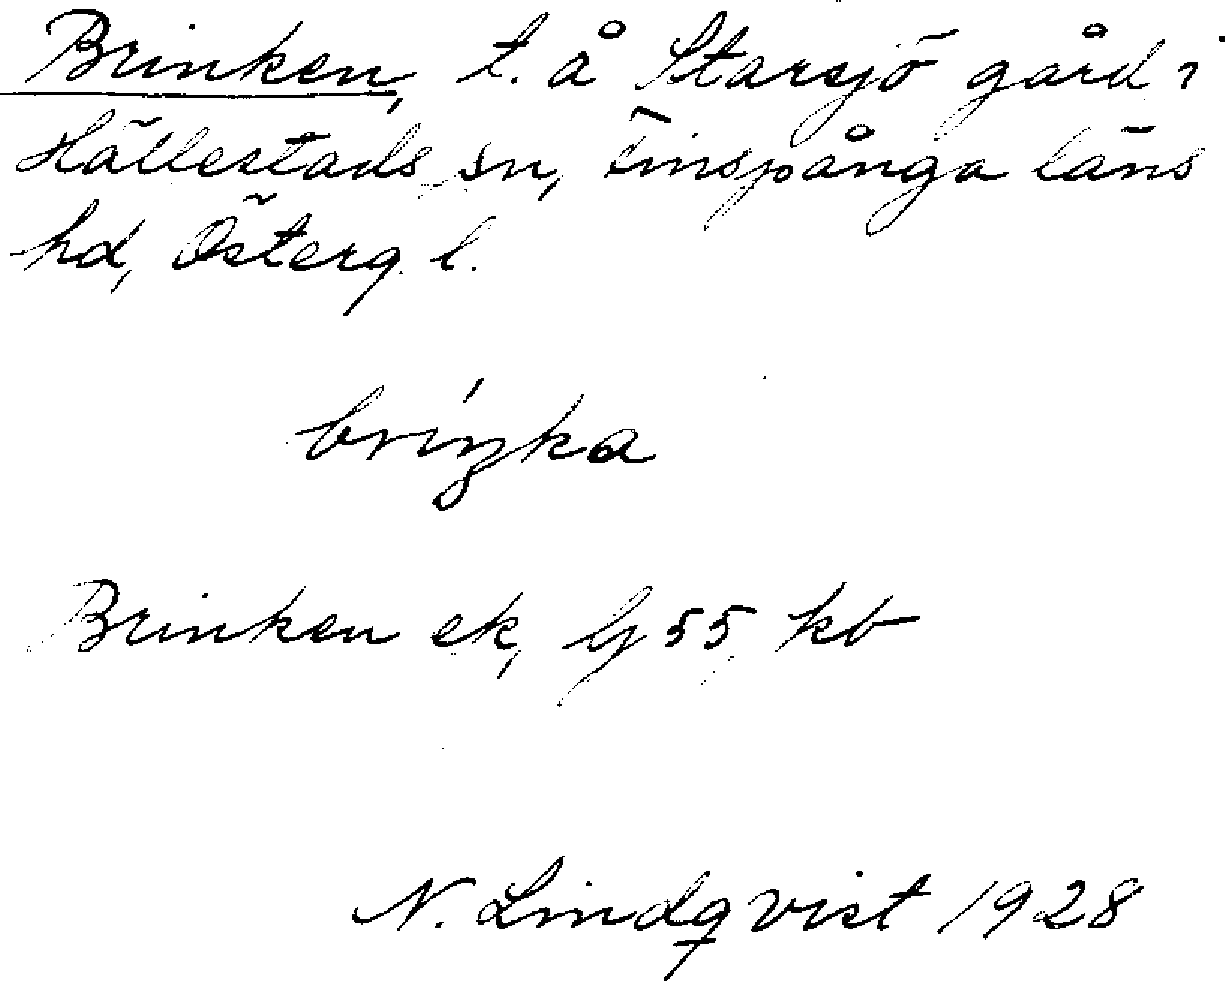 Brinken, t. å Starsjö gård i
Hällestads sn, Finspånga läns
hd, Österg. l.
bríŋka
Brinken ek, bl 55 kb
N. Lindqvist 1928